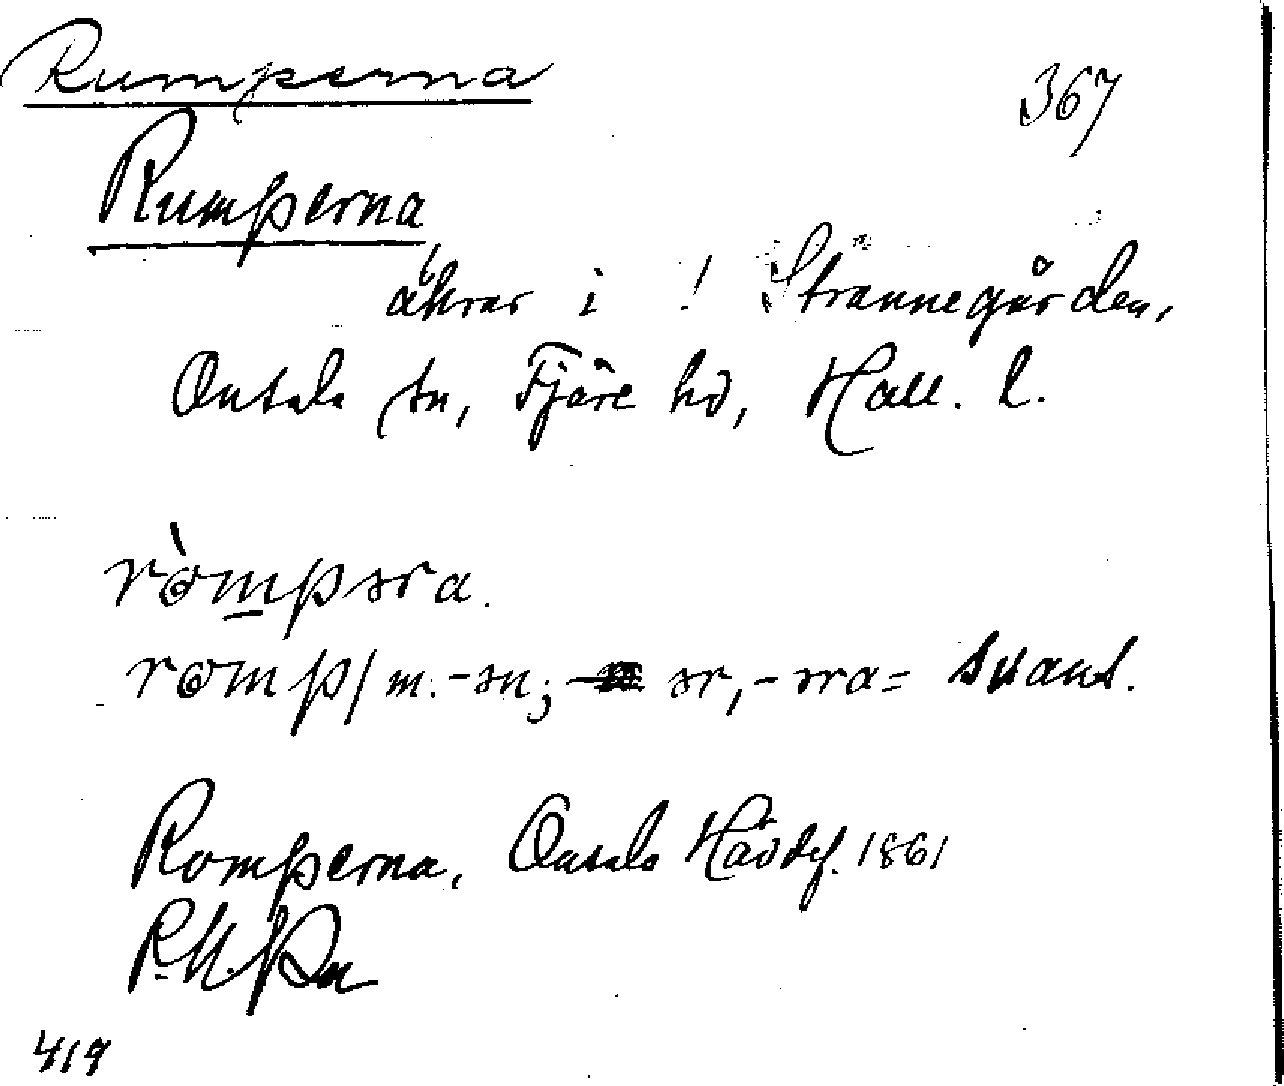 Rumperna
367
Rumperna
åkrar i ! Strannegården,
Onsala sn, Fjäre hd, Hall. l.
ròmpəra.
romp/ m. -ən; ər, -əra = svans.
Romperna, Onsala Hävdef. 1861
419